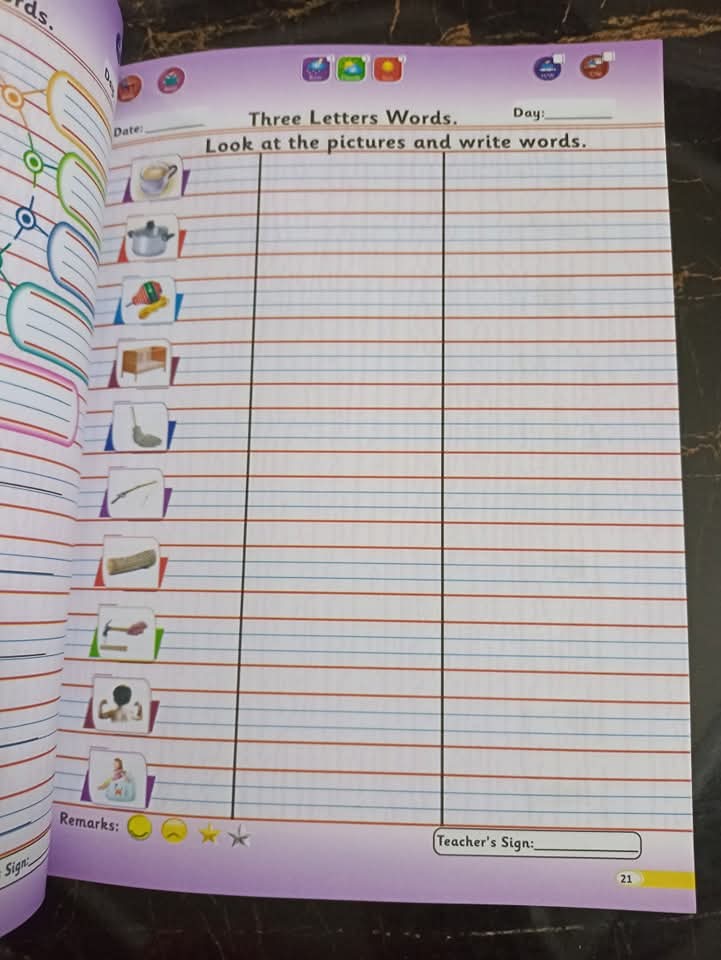 rds.
Da
Three Letters Words.
Day:________
Date:________
Look at the pictures and write words.
Remarks:
Teacher's Sign:____________
Sign:__
21